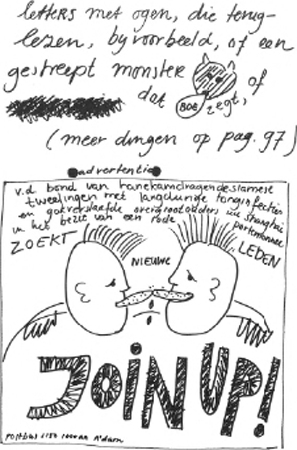 letters met ogen, die terug-
lezen, bijvoorbeeld, of een
gestreept monster of
dat BOE zegt,
(meer dingen op pag. 97)
advertentie
v.d. bond van hanekamdragende siamese
tweelingen met langdurige tonginfecties
en gokverslaafde overgrootouders uit Shanghai
in het bezit van een rode portemonnee
ZOEKT NIEUWE LEDEN
JOIN UP!
postbus A'dam